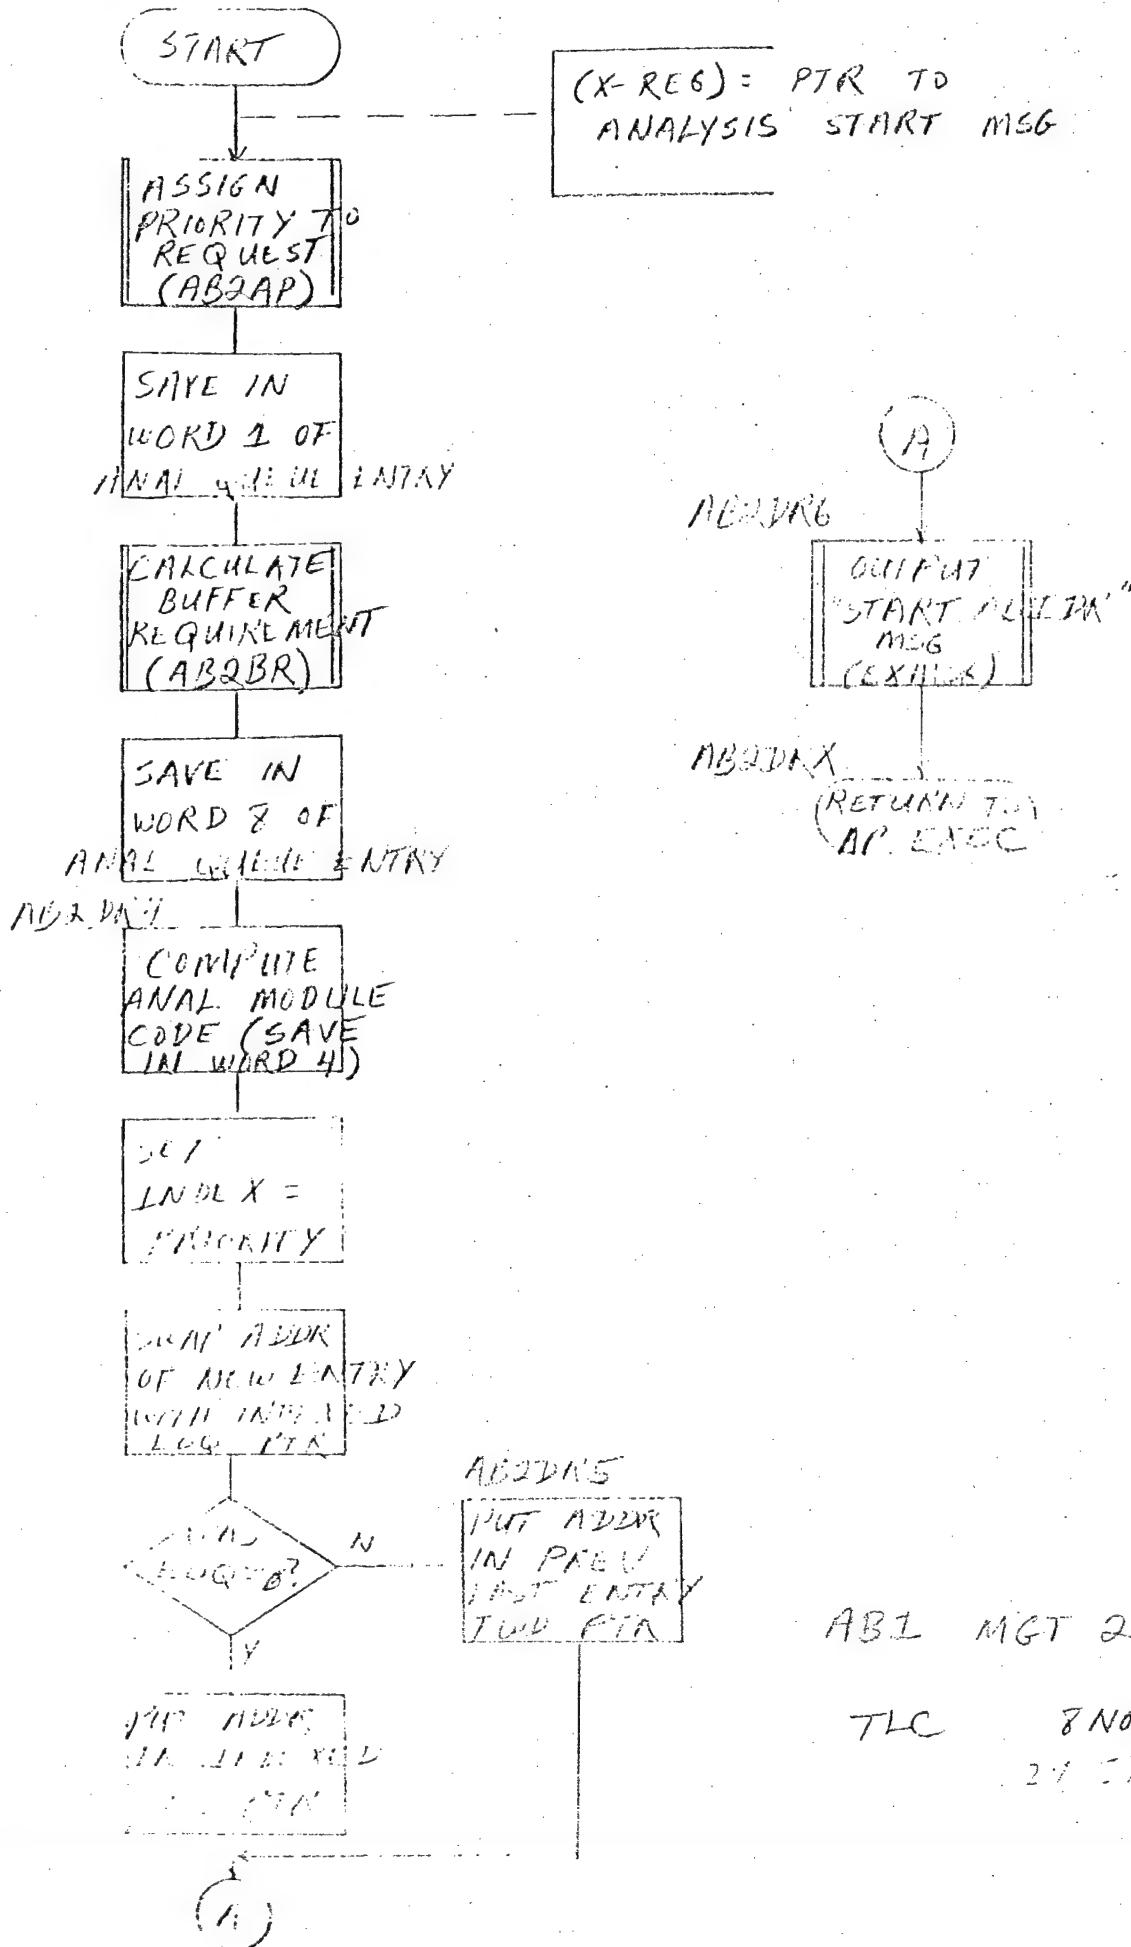 START
(X-REG) = PTR TO
ANALYSIS START MSG
ASSIGN
PRIORITY TO
REQUEST
(AB2AP)
SAVE IN
WORD 1 OF
ANAL QUEUE ENTRY
CALCULATE
BUFFER
REQUIREMENT
(AB2BR)
SAVE IN
WORD 8 OF
ANAL QUEUE ENTRY
COMPUTE
ANAL. MODULE
CODE (SAVE
IN WORD 4)
SET
INDEX =
PRIORITY
SWAP ADDR
OF NEW ENTRY
WITH INDEXED
PTR
N
Y
AB2DR5
PUT ADDR
IN PREV
LAST ENTRY
PTR
ADDR
INDEXED
PTR
A
A
AB2DR6
OUTPUT
"START
MSG
AB2DRX
RETURN TO
AP. EXEC
AB1 MGT 2
TLC 8 NO